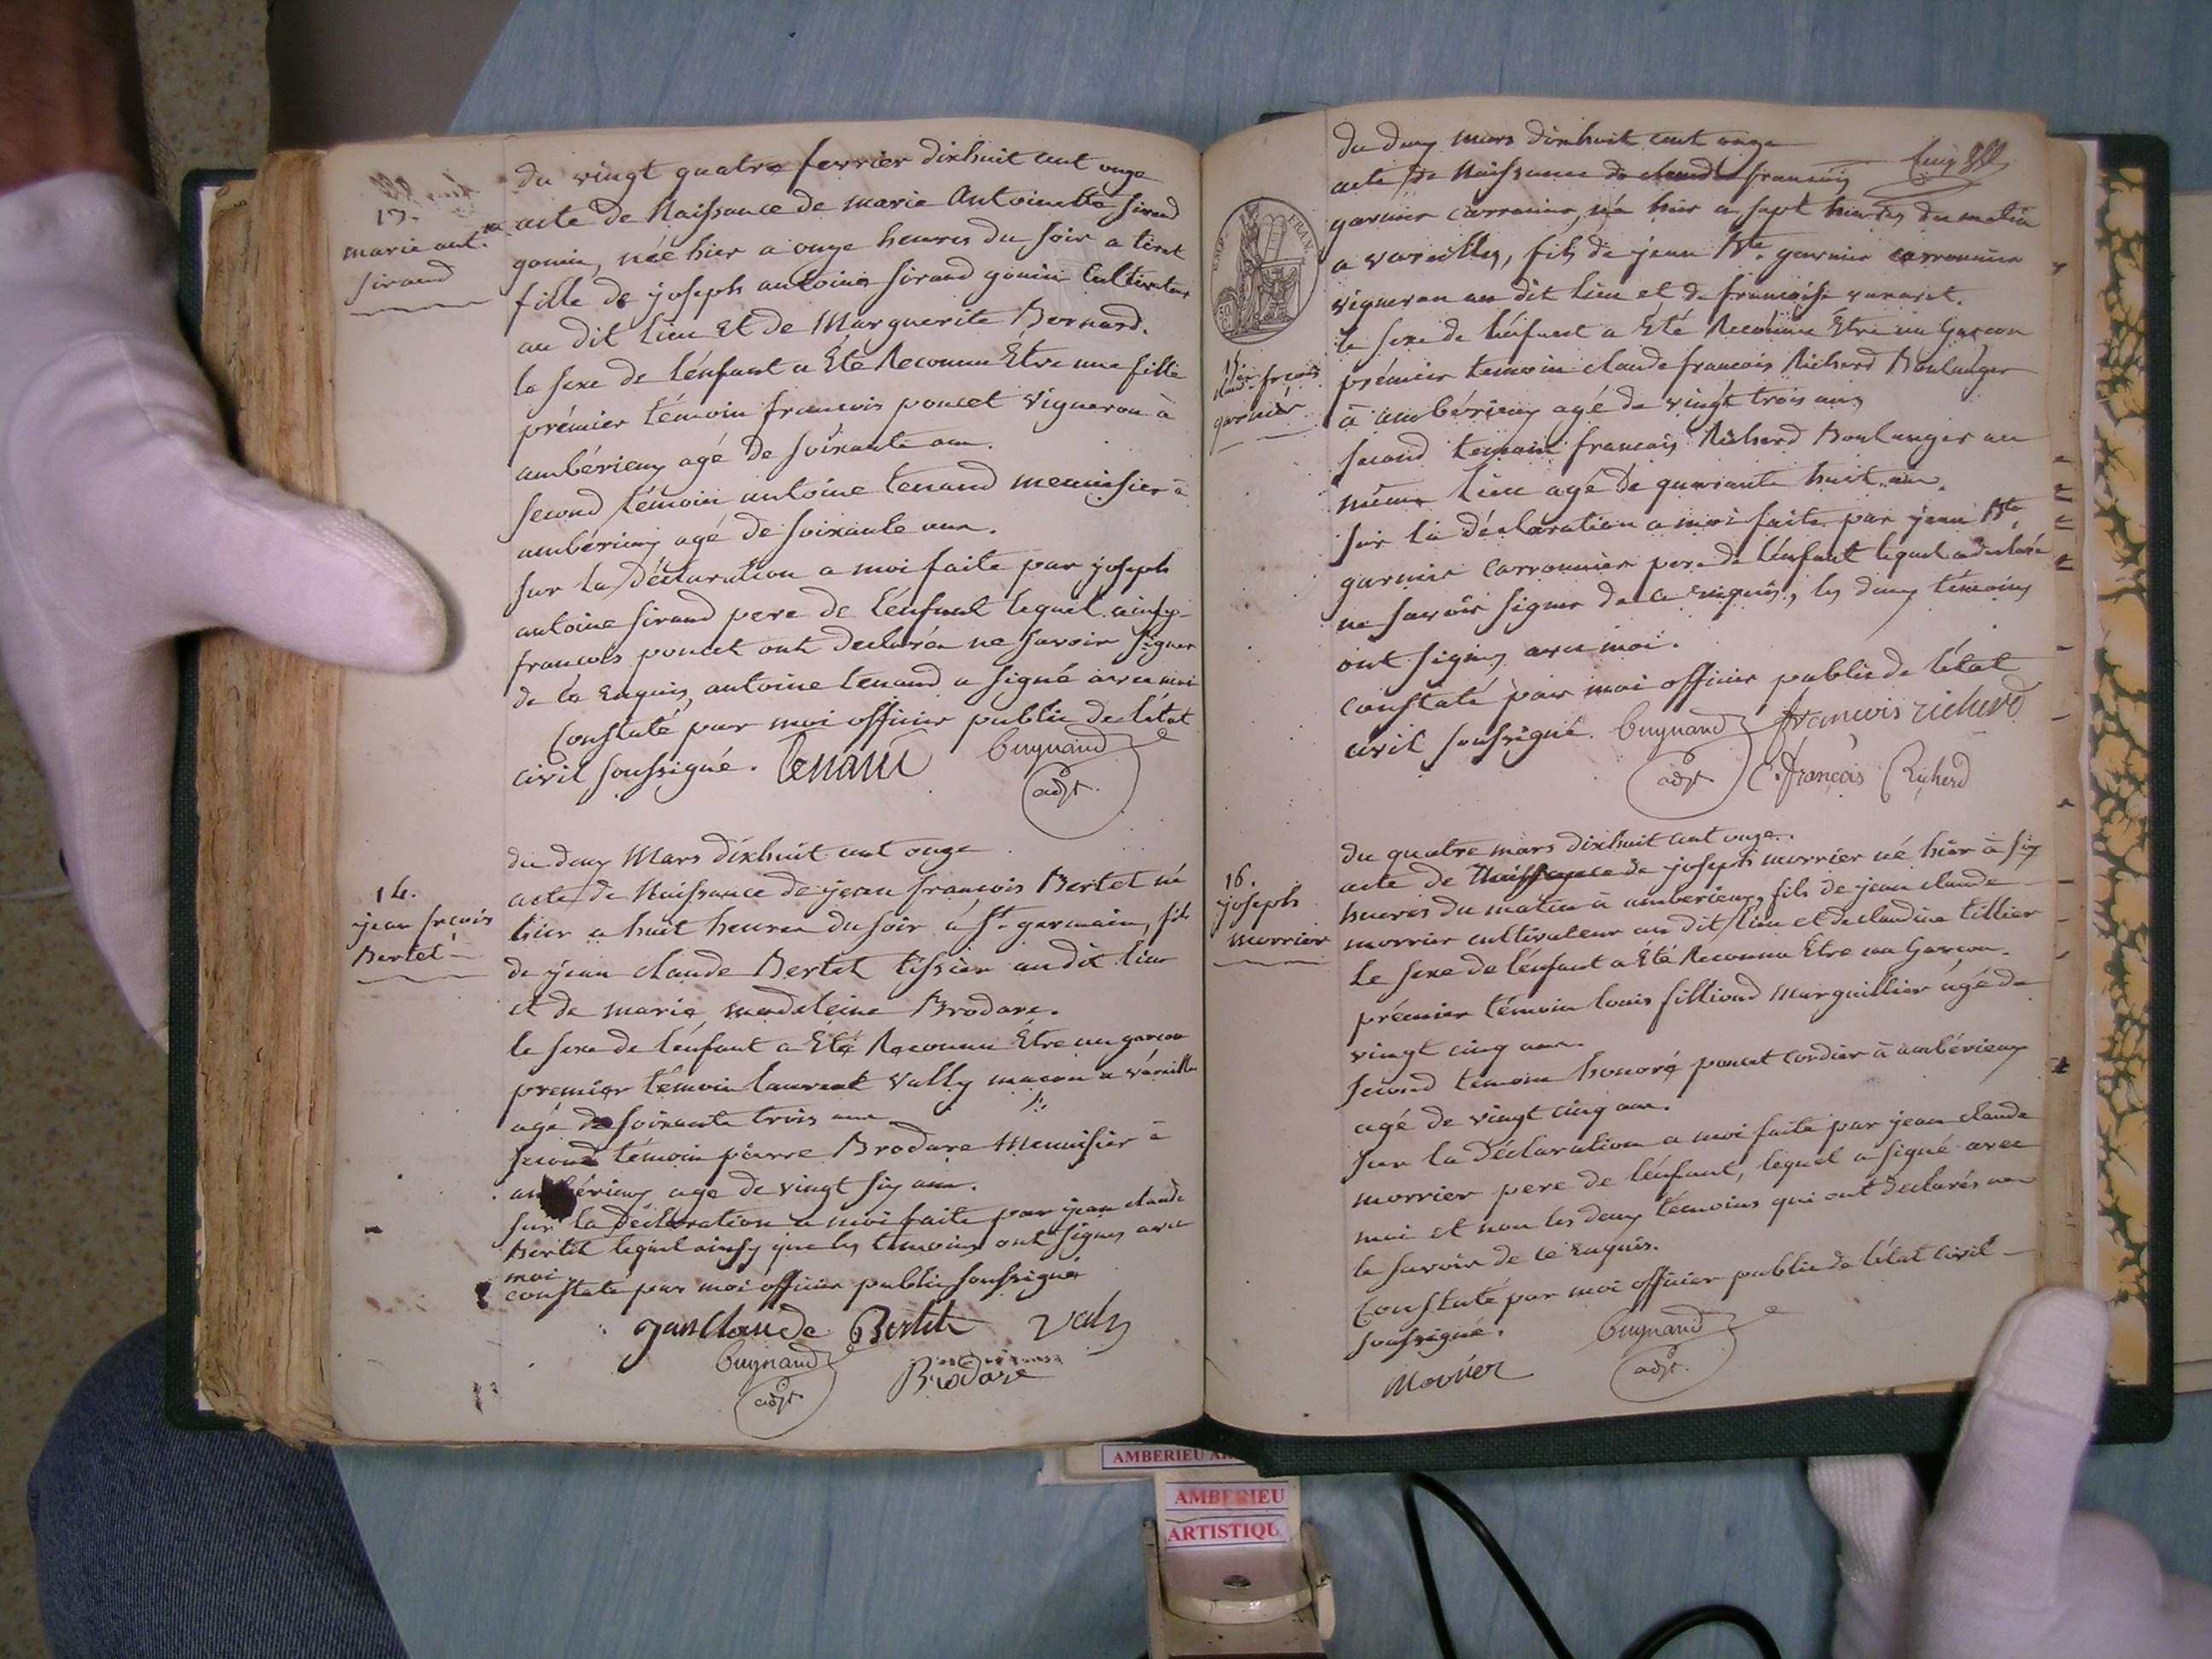 13.
marie ant.tte
sirand
du vingt quatre fevrier dixhuit cent onze
acte de Naissance de marie Antoinette sirand
gonin, née hier a onze heures du soir a tiret
fille de joseph antoine sirand gonin Cultivateur
au dit lieu et de Marguerite Bernard.
le sexe de l'énfant a Été Reconnu Etre une fille
prémier témoin francois poncet Vigneron à
ambérieux agé de soixante ans.
second témoin antoine tenand menuisier à
ambérieux agé de soixante ans.
sur la déclaration a moi faite par joseph
antoine sirand pere de l'énfant lequel ainsy
francois poncet ont declarés ne savoir signer
de ce Enquis, antoine tenand a signé avec moi
Constaté par moi officier public de l'état
civil soussigné. Tenand Guynand
adjt.
14.
jean frcois
Bertet
du deux Mars dixhuit cent onze
acte de Naissance de jean françois Bertet né
hier a huit heures du soir à St. germain, fils
de jean claude Bertet tissier au dit lieu
et de marie madeleine Brodare.
le sexe de l'énfant a Été Reconnu Être un garcon
premier témoin laurent Vally macon a váreilles
agé de soixante trois ans
second témoin pierre Brodare Menuisier à
ambérieux age de vingt six ans.
sur la déclaration a moi faite par jean claude
Bertet lequel ainsy que les temoins ont signes avec
moi.
constaté par moi officier public soussigné
jean Claude Bertet
Guynand Brodare
adjt
EMP. FRAN.
15.
garnier
du deux mars dixhuit cent onze
acte de Naissance de claude francois
garnier carronnier, né hier a sept heures du matin
a vareilles, fils de jean Bte. garnier carronnier
vigneron au dit lieu et de francoise
le sexe de l'énfant a Été Reconnu Être un Garcon
prémier temoin claude francois Richerd Boulanger
à ambérieux agé de vingt trois ans
second temoin francois Richerd Boulanger au
même lieu agé de quarante huit ans.
sur la déclaration a moi faite par jean Bte
garnier carronnier pere de l'énfant lequel a declaré
ne savoir signer de ce enquis, les deux témoins
ont signés avec moi.
constaté par moi officier public de l'état
civil soussigné. Guynand francois richerd
adjt C. françois Richerd
16.
joseph
morrier
du quatre mars dixhuit cent onze.
acte de Naissance de joseph morrier né hier à six
heures du matin à amberieux, fils de jean claude
morrier cultivateur au dit lieu et de claudine tillier
Le sexe de l'énfant a Été Reconnu Etre un Garcon.
prémier témoin louis filliond Marguillier agé de
vingt cinq ans.
second temoin honoré poncet cordier à ambérieux
agé de vingt cinq ans.
sur la Déclaration a moi faite par jean claude
morrier pere de l'énfant, lequel a signé avec
moi et non les deux témoins qui ont declarés ne
le savoir de ce enquis.
Constaté par moi officier public de l'état civil
soussigné. Guynand
morrier adjt.
AMBERIEU
AMBERIEU
ARTISTIQU